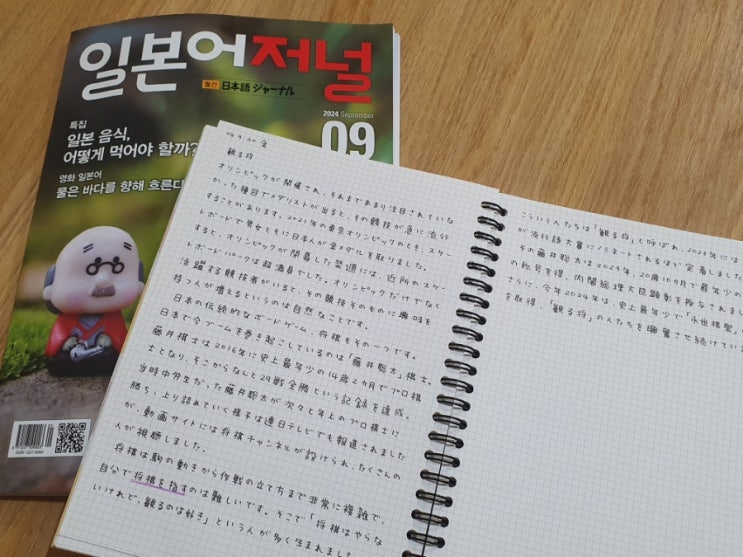 일본어저널
월간 日本語ジャーナル
2024 September
09
특집
일본 음식,
어떻게 먹어야 할까?
영화 일본어
물은 바다를 향해 흐른다
24.9.20 金
観る将
オリンピックが開催され、それまであまり注目されていな
かった種目でメダリストが出ると、その競技が急に流行
することがあります。2021年の東京オリンピックのとき、スケー
トボードで男女ともに日本人が金メダルを取りました。
すると、オリンピックが閉幕した翌週には、近所のスケー
トボードパークは超満員でした。オリンピックだけでなく
活躍する競技者がいると、その競技そのものに興味を
持つ人が増えるというのは自然なことです。
日本の伝統的なボードゲーム、将棋もその一つです。
日本で今ブームを巻き起こしているのは「藤井聡太」棋士。
藤井棋士は2016年に史上最年少の14歳2カ月でプロ棋
士となり、そこからなんと29戦全勝という記録を達成。
当時中学生だった藤井聡太が次々と年上のプロ棋士に
勝ち、上り詰めていく様子は連日テレビでも報道されました
が、動画サイトには将棋チャンネルが設けられ、たくさんの
人が視聴しました。
将棋は駒の動きから作戦の立て方まで非常に複雑で、
自分で将棋を指すのは難しいです。そこで「将棋はやらな
いけれど、観るのは好き」という人が多く生まれました
こういう人たちは「観る将」と呼ばれ、2023年には
が流行語大賞にノミネートされるほど定着しました
その藤井聡太は2023年、20歳10カ月で最年少の
の称号を得、内閣総理大臣顕彰を授与されまし
さらに、今年2024年は、史上最年少で「永世棋聖」
を取得、「観る将」の人たちを興奮させ続けてい